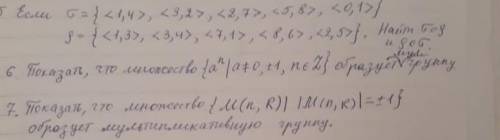 5 Если σ = {<1,4>, <3,2>, <2,7>, <5,8>, <0,1>}
ρ = {<1,3>, <3,4>, <7,1>, <8,6>, <2,5>}. Найти σоρ
и ρоσ.
6. Показать, что множество {aⁿ | a≠0, ±1, n∈Z} образует мульт. группу
7. Показать, что множество {M(n,R) | |M(n,R)|=±1}
образует мультипликативную группу.